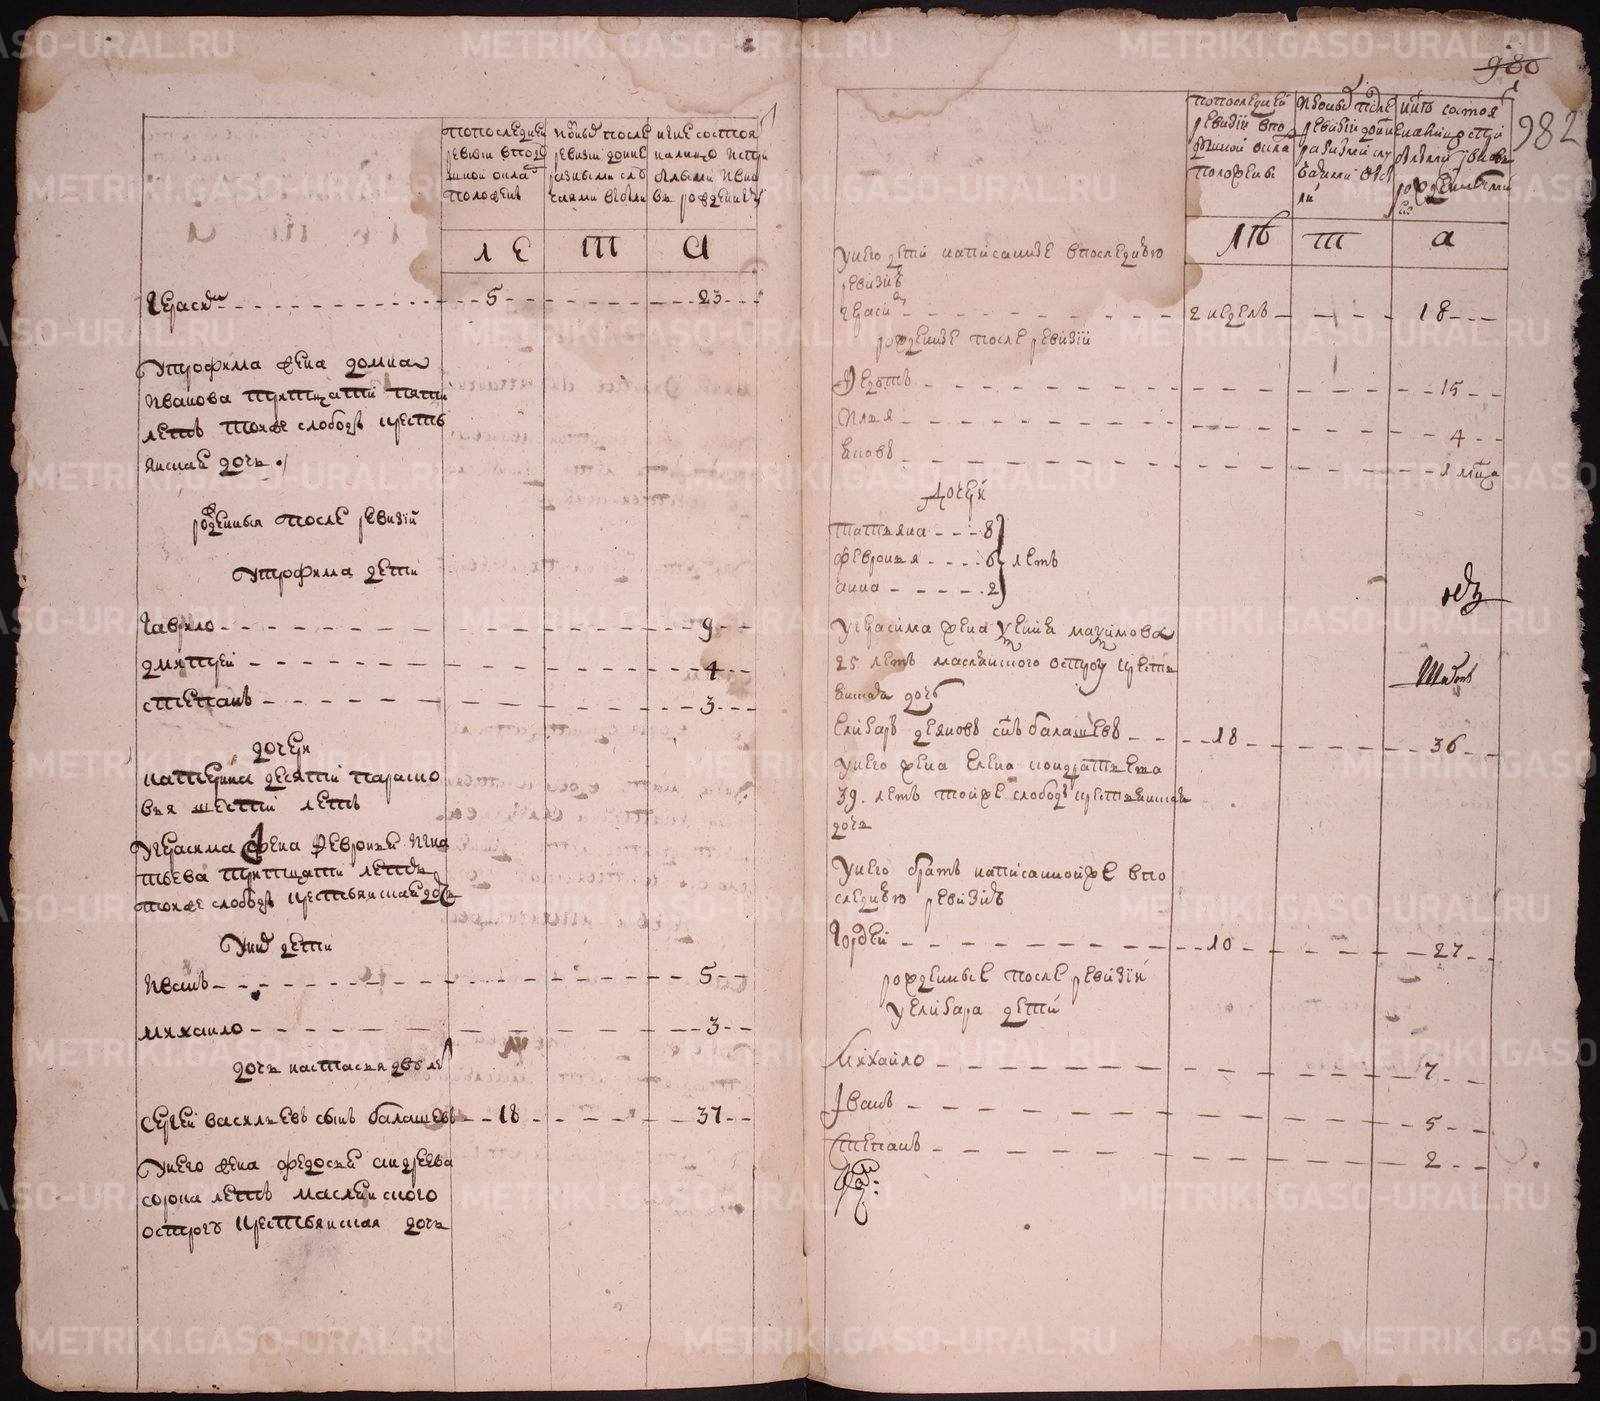 попоследнеи
ревизии вподу
шной окладъ
положенъ
ивоныя после
ревизии доныне
разными слу
чаями выбыли
ныне состоя
налицо испри
былыми ивно
вь рожденными
лета
герасимъ 5 23
утрофима жена домна
иванова тритцати пяти
летъ тояже слободы кресть
янская дочь
рожденныя после ревизiи
утрофима дети
гаврило 9
дмитреи 4
степанъ 3
дочери
катерина десяти параско
вья шести летъ
угерасима жена февронья игна
тьева тритцати летъ
тояже слободы крестьянская дочь
уних дети
иванъ 5
михаило 3
дочь настасья дву летъ
сергеи васильевъ сынъ балашевъ 18 37
унего жена федосья андреева
сорока летъ маслянского
острогу крестьянская дочь
980
982
попоследней
ревизiи впо
душной окла
положены
после
ревизiи доны
разными слу
чаями
ныне состоя
рожденными
лета
унего дети написанные впоследнюю
ревизiю
герасимъ 2 недель 18
рожденные после ревизiи
Федотъ 15
Илья 4
яковъ 1 мца
дочери
татьяна 8
февронья 6 летъ
анна 2
угерасима жена максимова
25 летъ маслянского острогу кресть
янская дочь
елизаръ сынъ балашевъ 18 36
унего жена елена кондратьева
39 летъ тойже слободы крестьянская
дочь
унего братъ написанной же впо
следнюю ревизiю
гордей 10 27
рожденные после ревизiи
уелизара дети
Михайло 7
Iванъ 5
Степанъ 2
METRIKI.GASO-URAL.RU